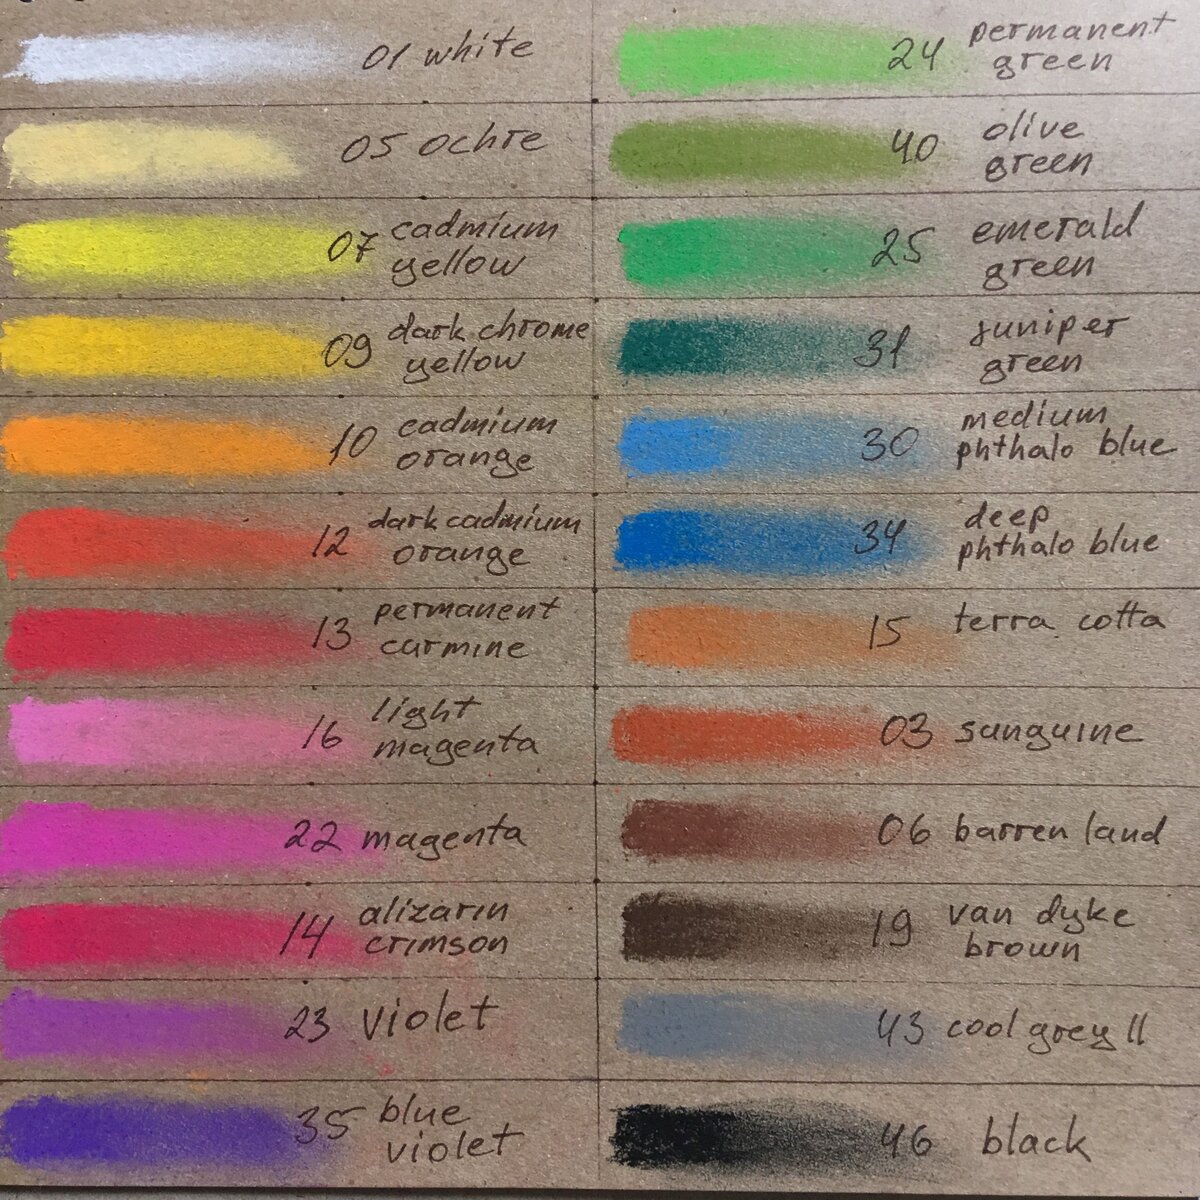 01 white
05 ochre
07 cadmium
yellow
09 dark chrome
yellow
10 cadmium
orange
12 dark cadmium
orange
13 permanent
carmine
16 light
magenta
22 magenta
14 alizarin
crimson
23 violet
35 blue
violet
24 permanent
green
40 olive
green
25 emerald
green
31 juniper
green
30 medium
phthalo blue
34 deep
phthalo blue
15 terra cotta
03 sanguine
06 barren land
19 van dyke
brown
43 cool grey II
46 black